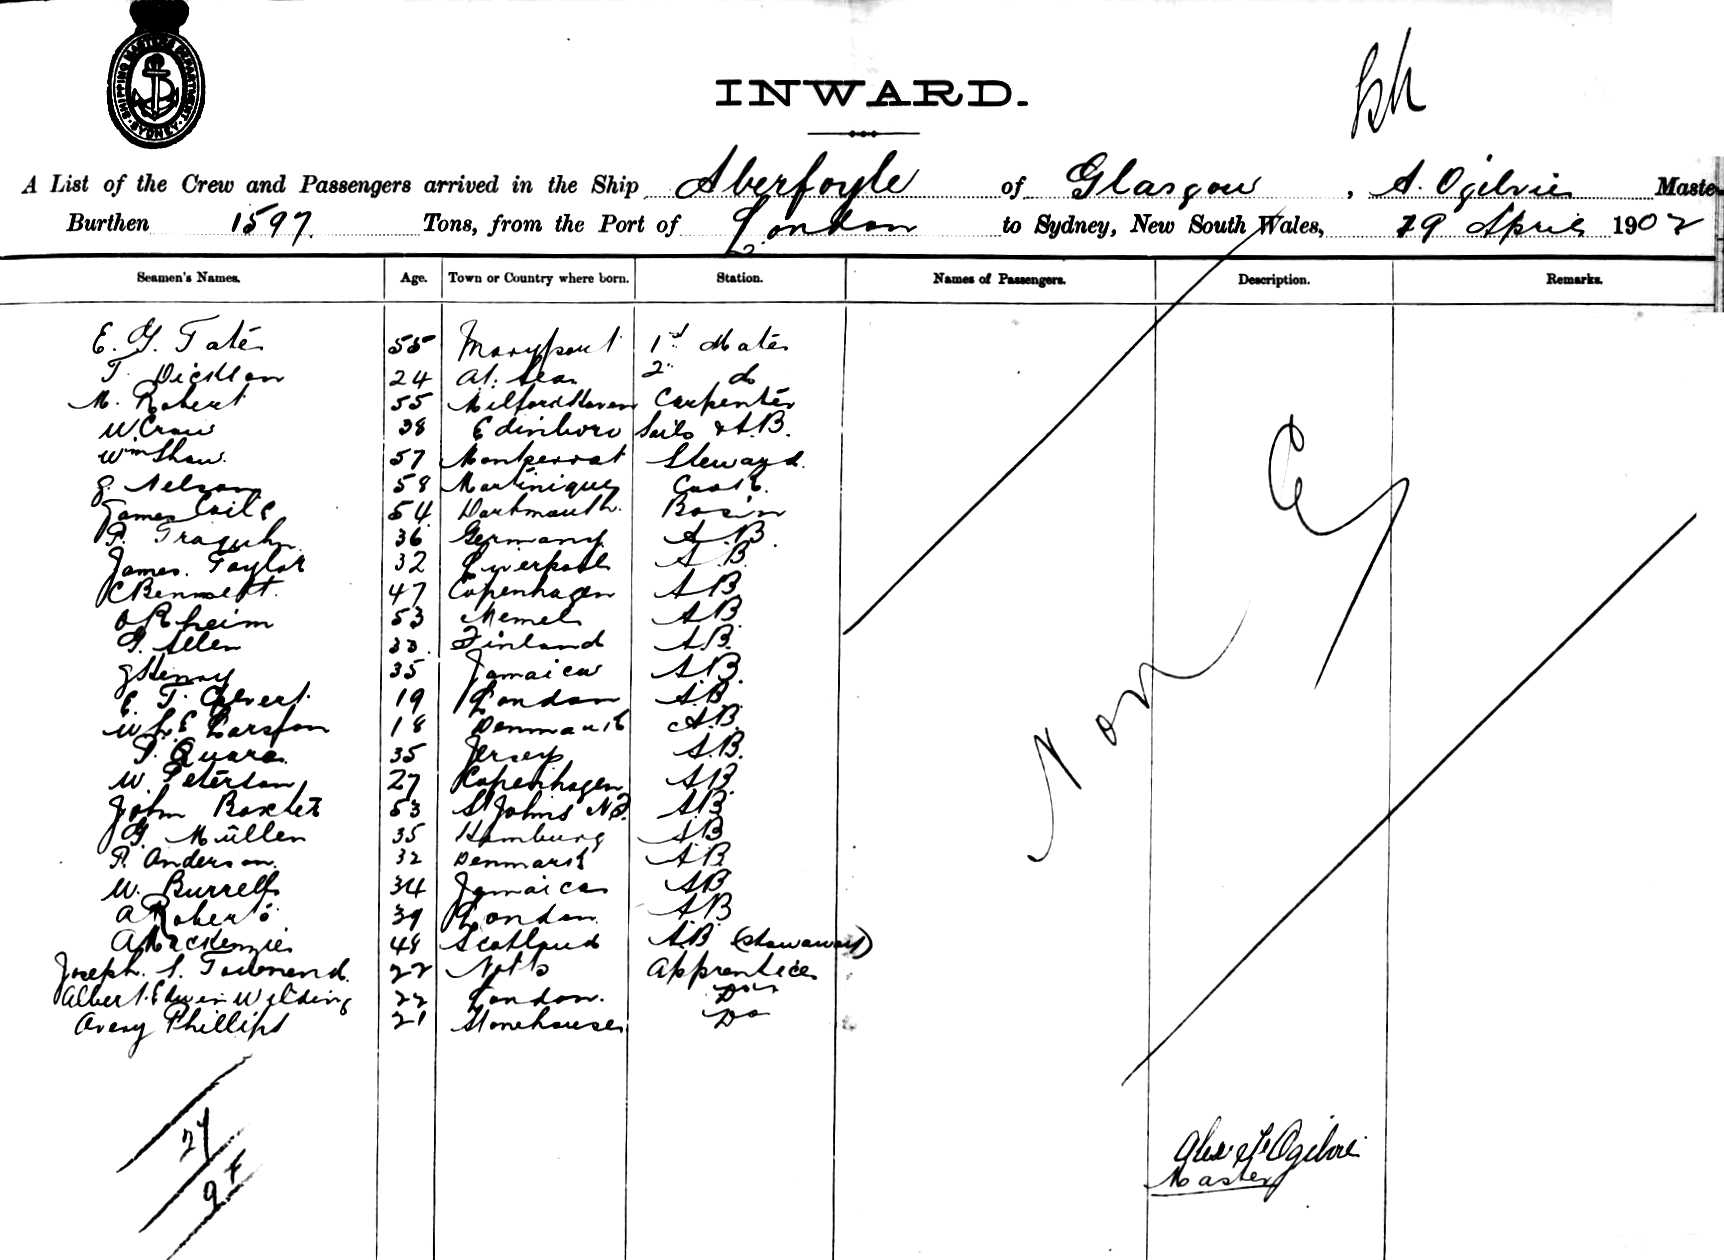 SHIPPING MASTERS DEPARTMENT SYDNEY
INWARD.
A List of the Crew and Passengers arrived in the Ship Aberfoyle of Glasgow, A. Ogilvie Maste
Burthen 1597 Tons, from the Port of London to Sydney, New South Wales, 19 April 1902
Seamen's Names. Age. Town or Country where born. Station. Names of Passengers. Description. Remarks.
E. G. Tate 55 Maryport 1st Mate
T. Dickson 24 At Sea 2 do
M. Robert 55 Milford Haven Carpenter
W. Craw 38 Edinboro Sails & A.B.
Wm Shaw 57 Montserrat Steward
J. Nelson 58 Martinique Cook
James 54 Dartmouth Bosin
P. 36 Germany A B
James Taylor 32 Liverpool A B
C Bennett 47 Copenhagen A B
O Rheim 53 Memel A B
G. Allen 33 Finland A.B.
J Henry 35 Jamaica A B
E. T. Calvert 19 London A.B.
W L E Larsson 18 Denmark A.B.
P. Quara 35 Jersey A.B.
W. Peterson 27 Copenhagen A B
John Baxter 53 St Johns NF A B
G. Müllen 35 Hamburg A B
P. Anderson 32 Denmark A B
W. Burrell 34 Jamaica A B
A Roberts 39 London A B
A Mackenzie 48 Scotland A.B (stowaway)
Joseph. S. Townend. 22 Notts Apprentice
Albert Edwin Wilding 22 London. Do
Avery Phillips 21 Stonehouse Do
Non E
27
Alex Ogilvie
Master